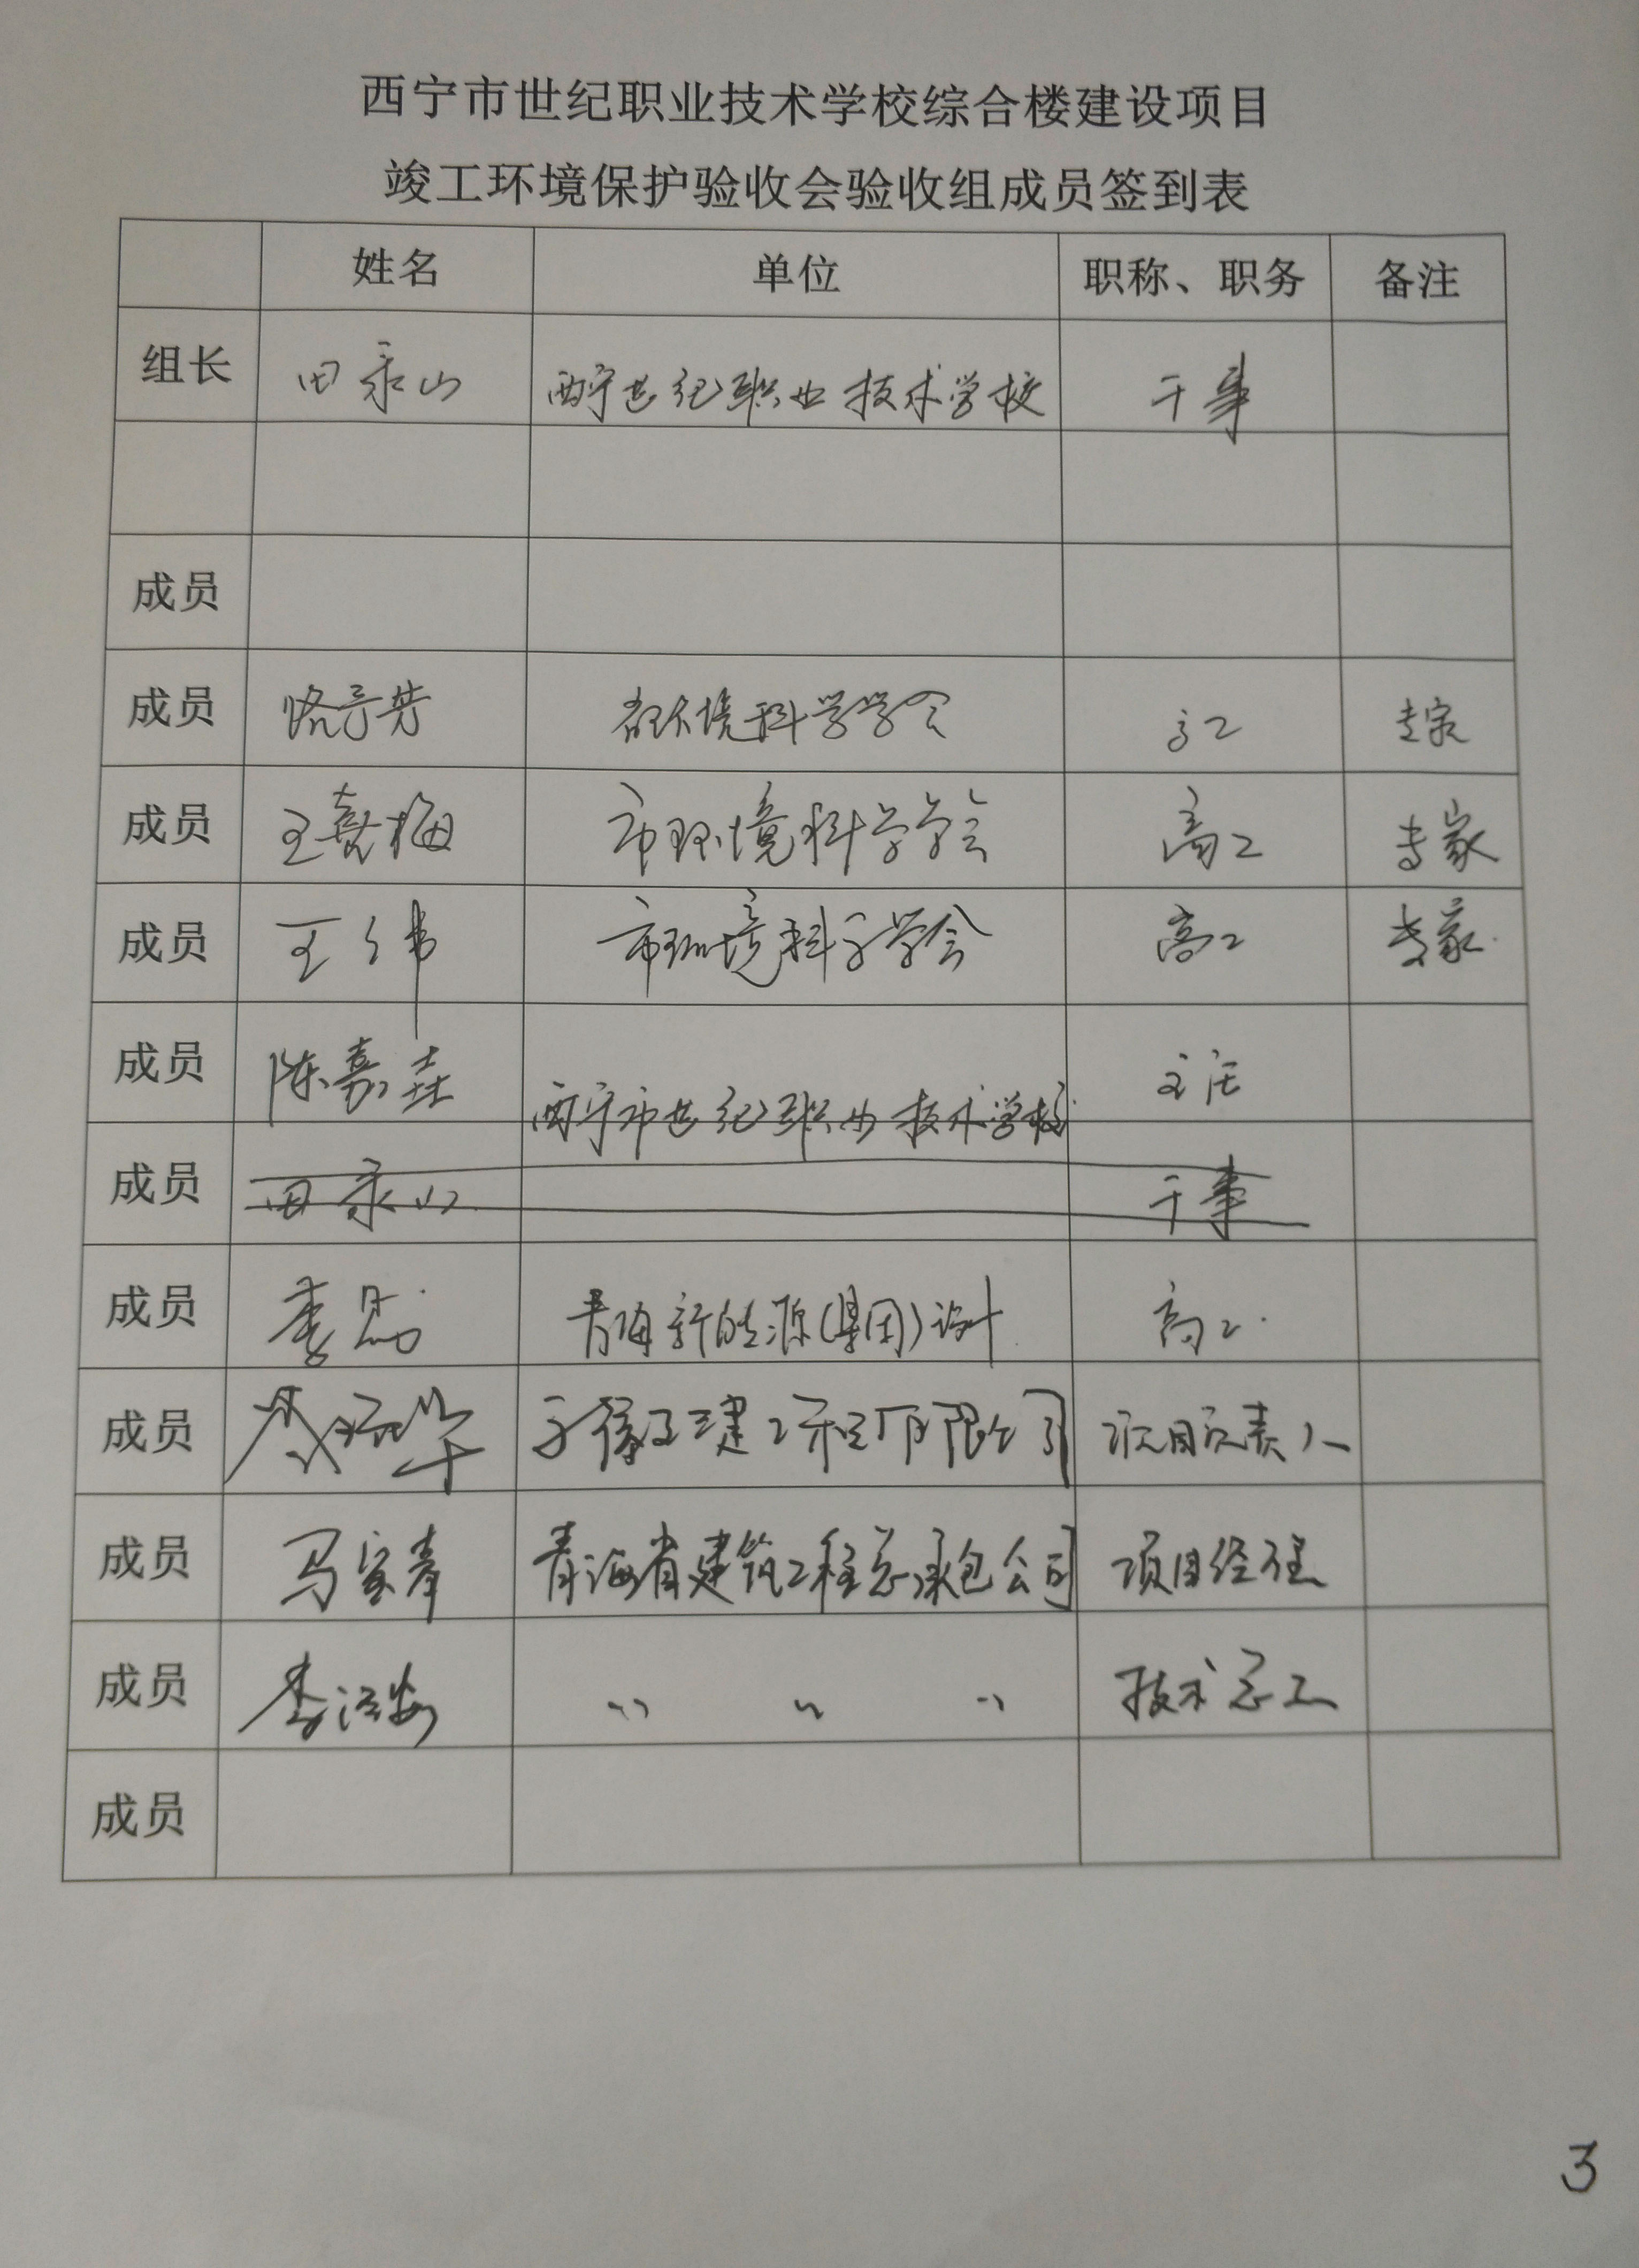 西宁市世纪职业技术学校综合楼建设项目
竣工环境保护验收会验收组成员签到表
姓名 单位 职称、职务 备注
组长 田永山 西宁世纪职业技术学校 干事
成员
成员 环境科学学会 高工 专家
成员 王喜梅 市环境科学学会 高工 专家
成员 王伟 市环境科学学会 高工 专家
成员 陈嘉垚 西宁市世纪职业技术学校 主任
成员 田永山 干事
成员 李 青海新能源(集团)设计 高工
成员 华 建工程有限公司 项目负责人
成员 马宝青 青海省建筑工程总承包公司 项目经理
成员 李 〃 〃 〃 技术总工
成员
3